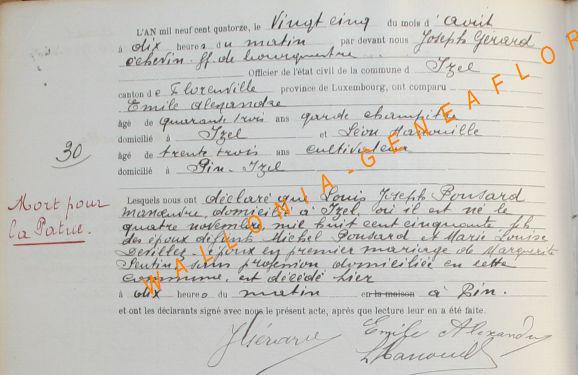 L'AN mil neuf cent quatorze, le Vingt cinq du mois d'août
à dix heures du matin par devant nous Joseph Gérard
échevin ff. de bourgmestre
Officier de l'état civil de la commune d Izel
canton de Florenville province de Luxembourg, ont comparu
Emile Alexandre
âgé de quarante trois ans garde champêtre
domicilié à Izel et Léon
âgé de trente trois ans cultivateur
domicilié à Pin-Izel
30
Mort pour
la Patrie.
Lesquels nous ont déclaré que Louis Joseph Ponsard
manœuvre, domicilié à Izel, où il est né le
quatre novembre mil huit cent cinquante
des époux défunts Michel Ponsard et Marie Louise
époux en premier mariage de Marguerite
sans profession domiciliée en cette
commune, est décédé hier
à dix heures du matin en la maison à Pin.
et ont les déclarants signé avec nous le présent acte, après que lecture leur en a été faite.
JGérard Emile Alexandre
WALLONIA-GENEAFLOR